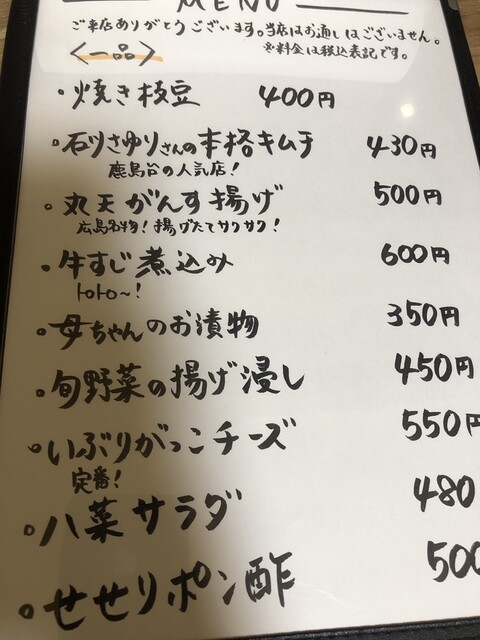 MENU
ご来店ありがとうございます。当店はお通しはございません。
※料金は税込表記です。
<一品>
・焼き枝豆 400円
・石川さゆりさんの本格キムチ 430円
鹿島谷の人気店!
・丸天がんす揚げ 500円
広島名物!揚げたてサクサク!
・牛すじ煮込み 600円
トロトロ〜!
・母ちゃんのお漬物 350円
・旬野菜の揚げ浸し 450円
・いぶりがっこチーズ 550円
定番!
・八菜サラダ 480
・せせりポン酢 500